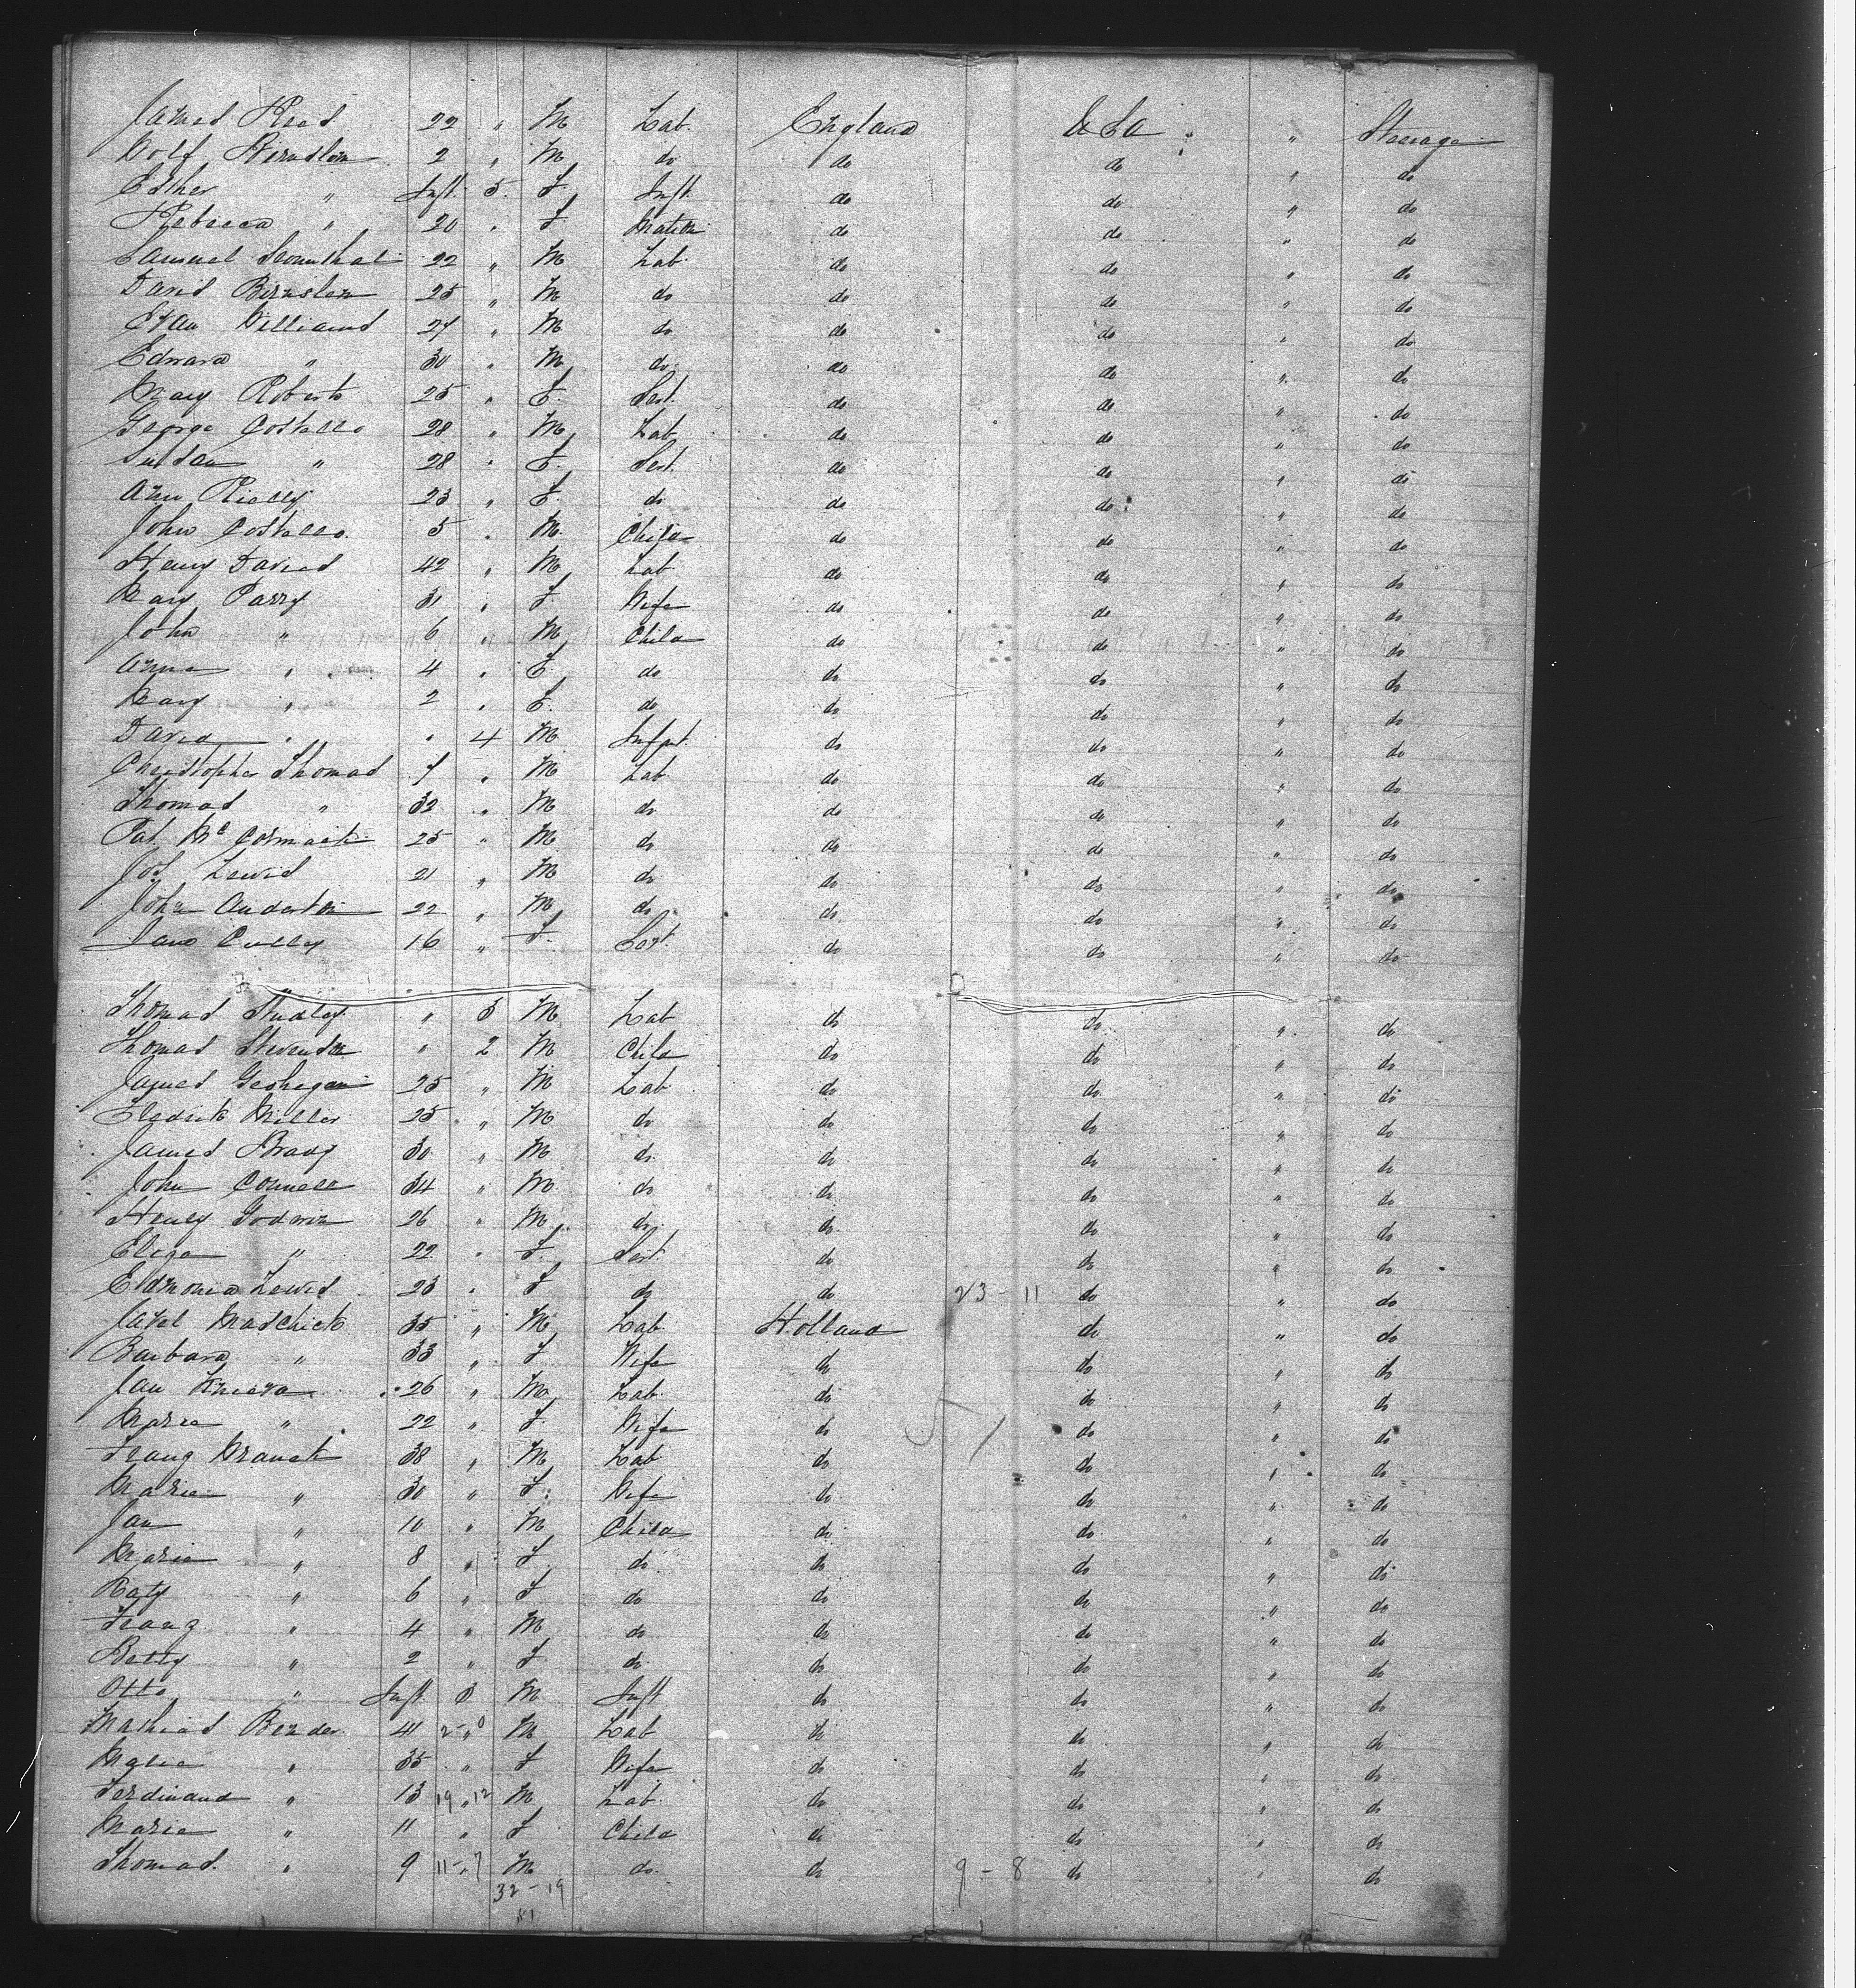 James Reed 22 " M Lab England U Sa " Steerage
Wolf Bernstein 2 " M do do do " do
Esther " Inft. 5 F Inft. do do " do
Rebecca " 20 " F Matron do do " do
Samuel 22 " M Lab. do do " do
David Bernstein 25 " M do do do " do
Evan Williams 27 " M do do do " do
Edward " 30 " M do do do " do
Mary Roberts 25 " F Sert. do do " do
George Costello 28 " M Lab do do " do
Susan " 28 " F. Sert. do do " do
Ann Rielly 23 " F. do do do " do
John Costello 5 " M. Child do do " do
Henry Davies 42 " M Lab do do " do
Mary Parry 31 " F Wife do do " do
John " 6 " M Child do do " do
Anna " 4 " F do do do " do
Mary " 2 " F. do do do " do
David " " 4 M Infnt. do do " do
Christopher Thomas 7 " M Lab do do " do
Thomas " 32 " M do do do " do
Pat McCormack 25 " M do do do " do
Jos Lewis 21 " M do do do " do
John Anderton 22 " M do do do " do
Jane 16 " F. Sert. do do " do
Thomas Studley " 3 M Lab do do " do
Thomas Stevenson " 2 M Child do do " do
James Geohegan 25 " M Lab do do " do
Fredrick Miller 25 " M do do do " do
James Brady 30 " M do do do " do
John Connell 34 " M do do do " do
Henry Godwin 26 " M do do do " do
Eliza " 22 " F Sert. do do " do
Lewis 23 " F do do 23 - 11 do " do
Madchick 35 " M Lab Holland do " do
Barbara " 33 " F Wife do do " do
Jan 26 " M Lab do do " do
Maria " 22 " F Wife do do " do
Franz 38 " M Lab do do " do
Maria " 30 " F Wife do do " do
Jan " 10 " M Child do do " do
Maria " 8 " F do do do " do
Katy " 6 " F do do do " do
Franz " 4 " M do do do " do
Betty " 2 " F do do do " do
Otto " Inft. 3 M Inft do do " do
Mathias Bender 41 2 " 0 M Lab do do " do
" 35 " F Wife do do " do
Ferdinand " 13 19 " 12 M Lab do do " do
Maria " 11 " F Child do do " do
Thomas " 9 11 - 7 M do do 9 - 8 do " do
32 - 19